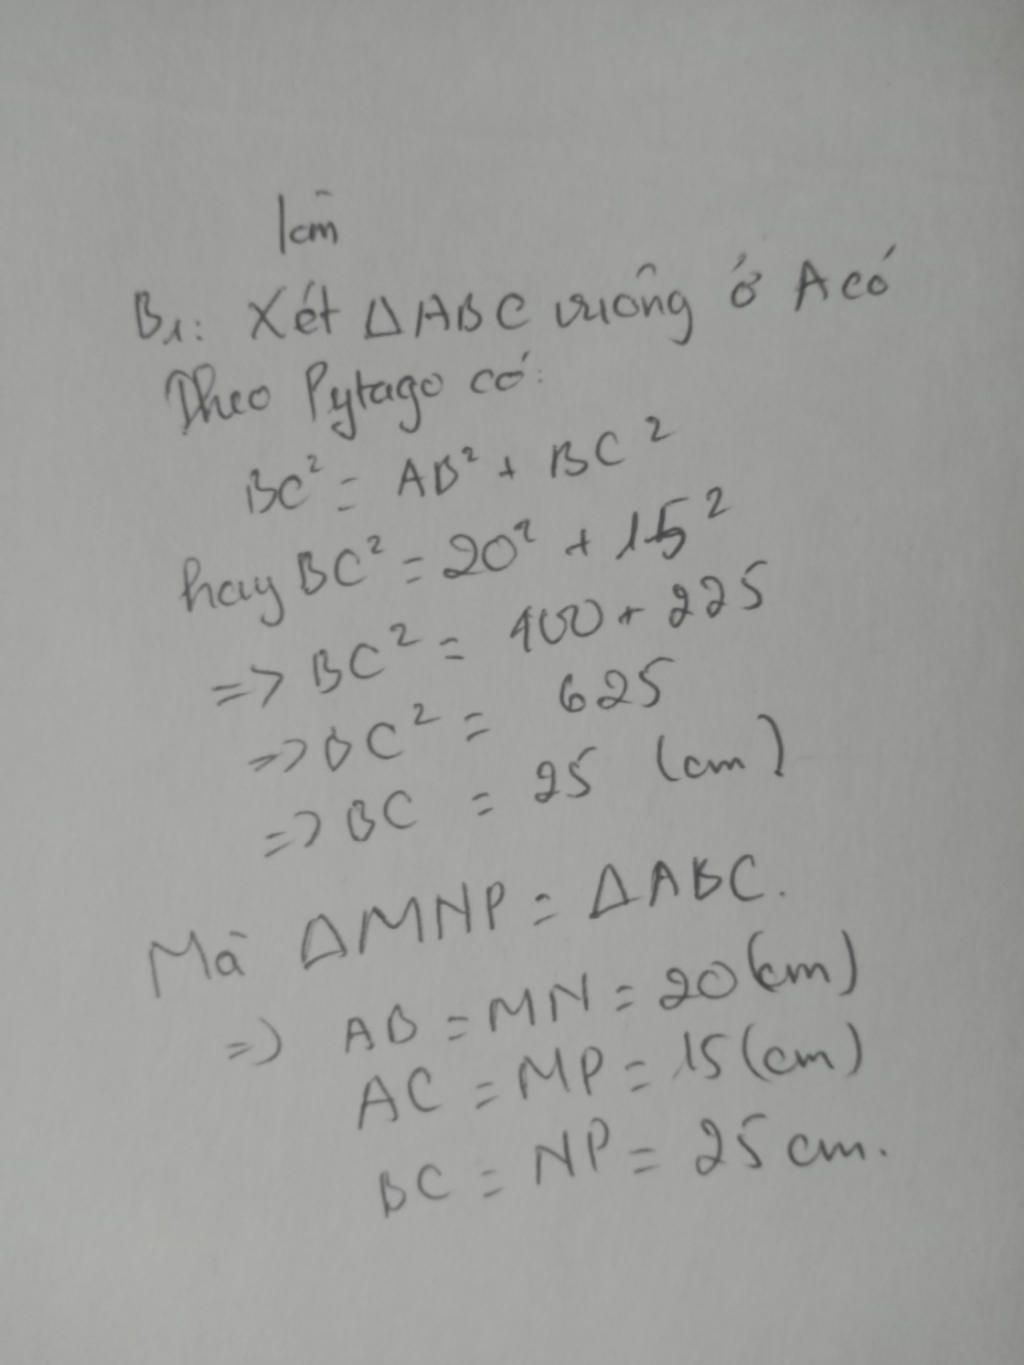 làm
B1: Xét ΔABC vuông ở A có
Theo Pytago có:
BC² = AB² + BC²
hay BC² = 20² + 15²
=> BC² = 400 + 225
=> BC² = 625
=> BC = 25 (cm)
Mà ΔMNP = ΔABC.
=> AB = MN = 20 (cm)
AC = MP = 15 (cm)
BC = NP = 25 cm.